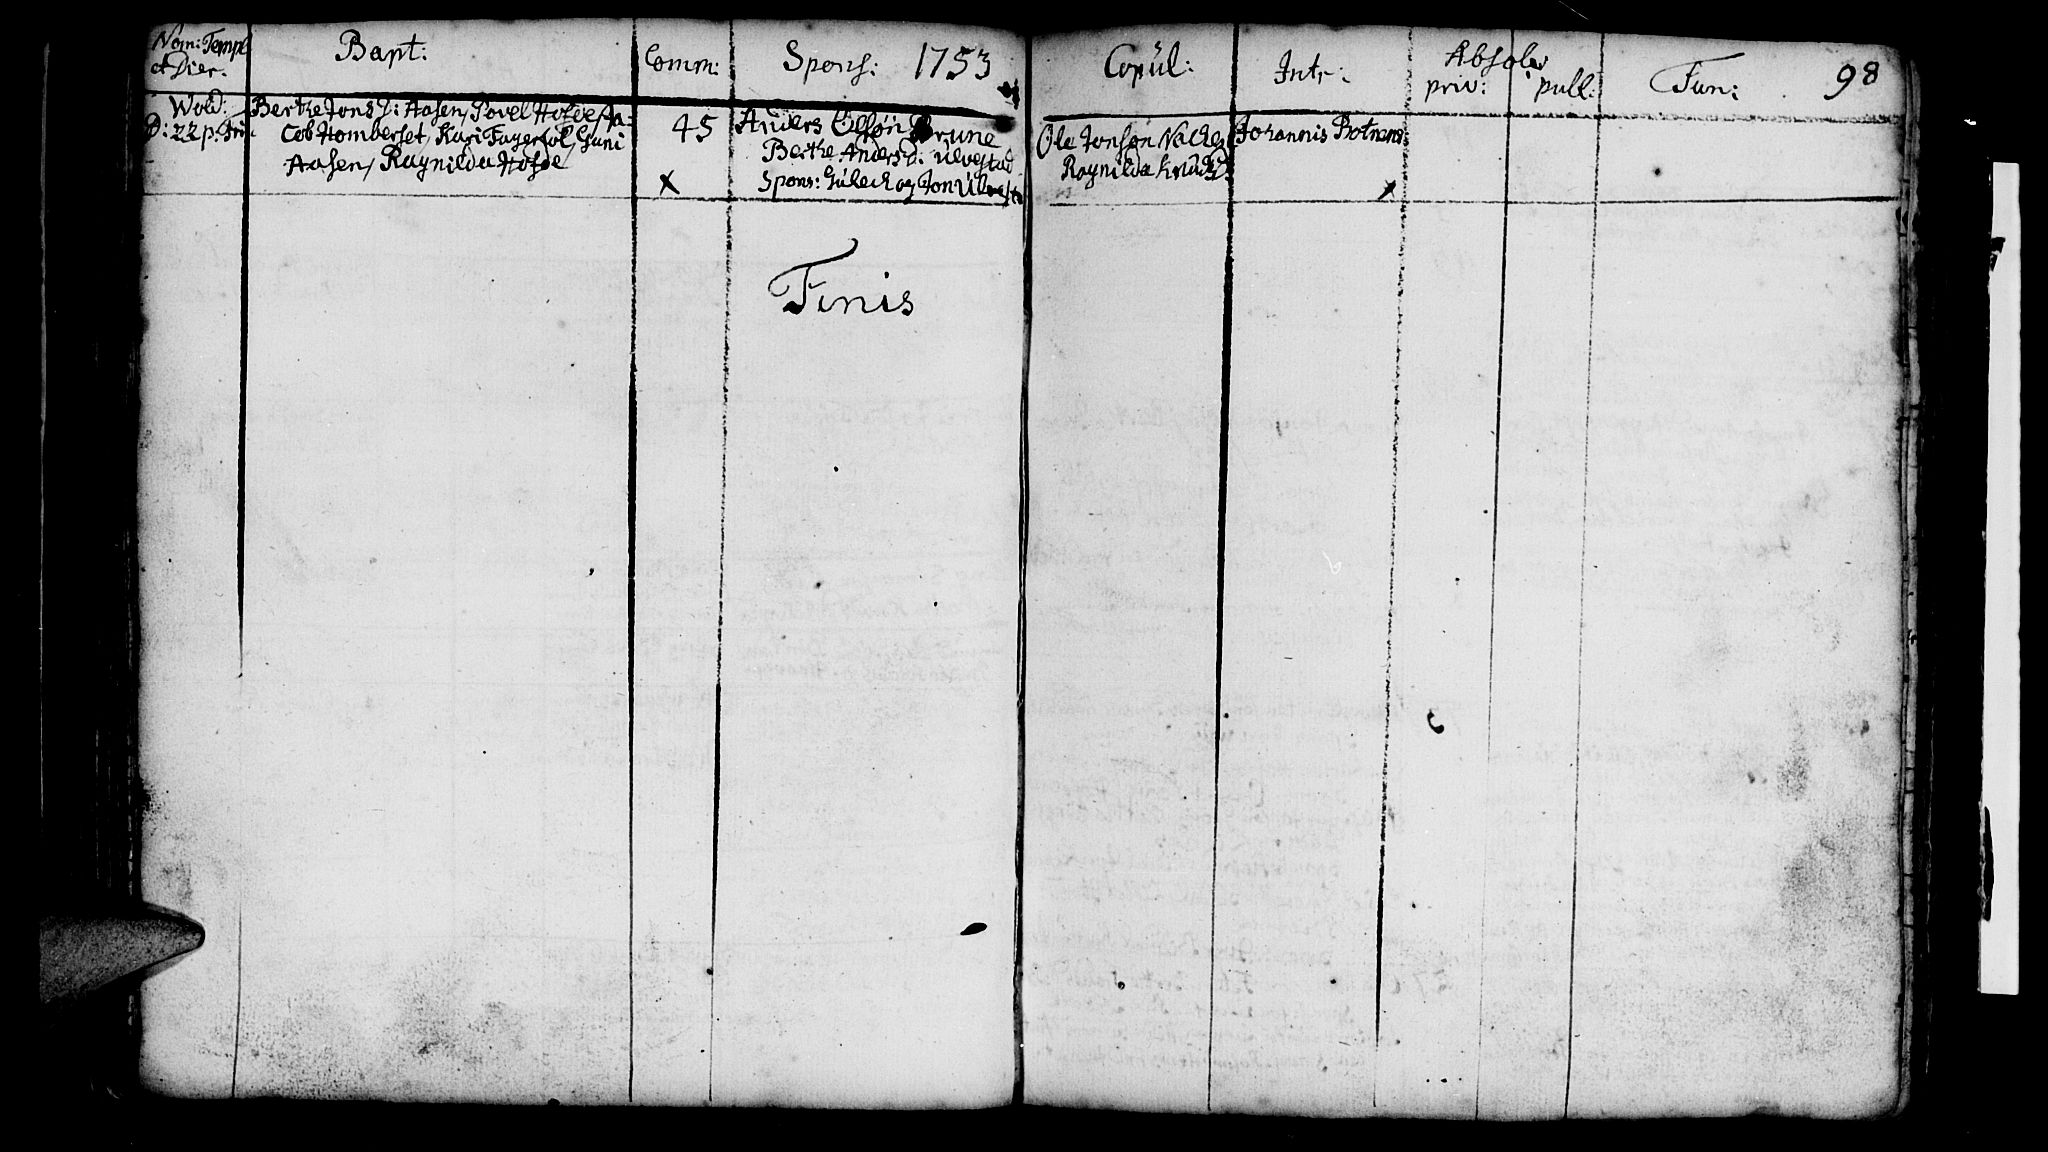 Nom: Templ
et Dier.
Bapt:
Comm:
Spons: 1753
Copul:
Intr:
Absolv
priv: publ:
Fun:
98
Wold:
D: 22 p. Trin.
Berthe Jons D: Aasen, Povel Hofde, Ja-
cob Homberset, Kari Fagerhol, Guni
Aasen, Ragnilda Hofde
45
x
Anders Olsøn Brune
Berthe Anders D: Ulvestad
Spons: Gulech og Jon Ulvesta
Ole Jonsøn
Ragnilda Knuds D:
Johannis Botnens
x
Finis